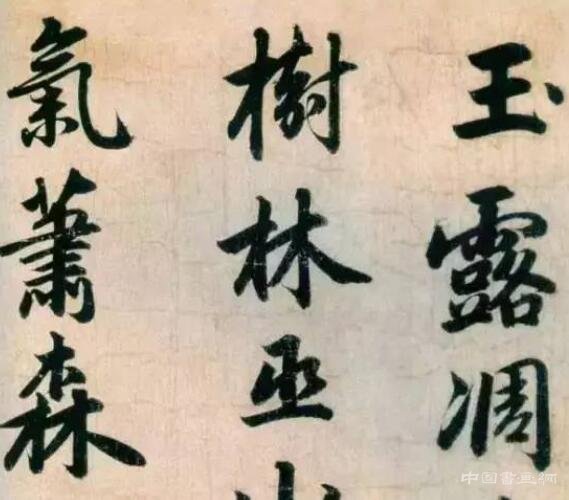 玉露凋
樹林巫山
氣蕭森
中国書画網